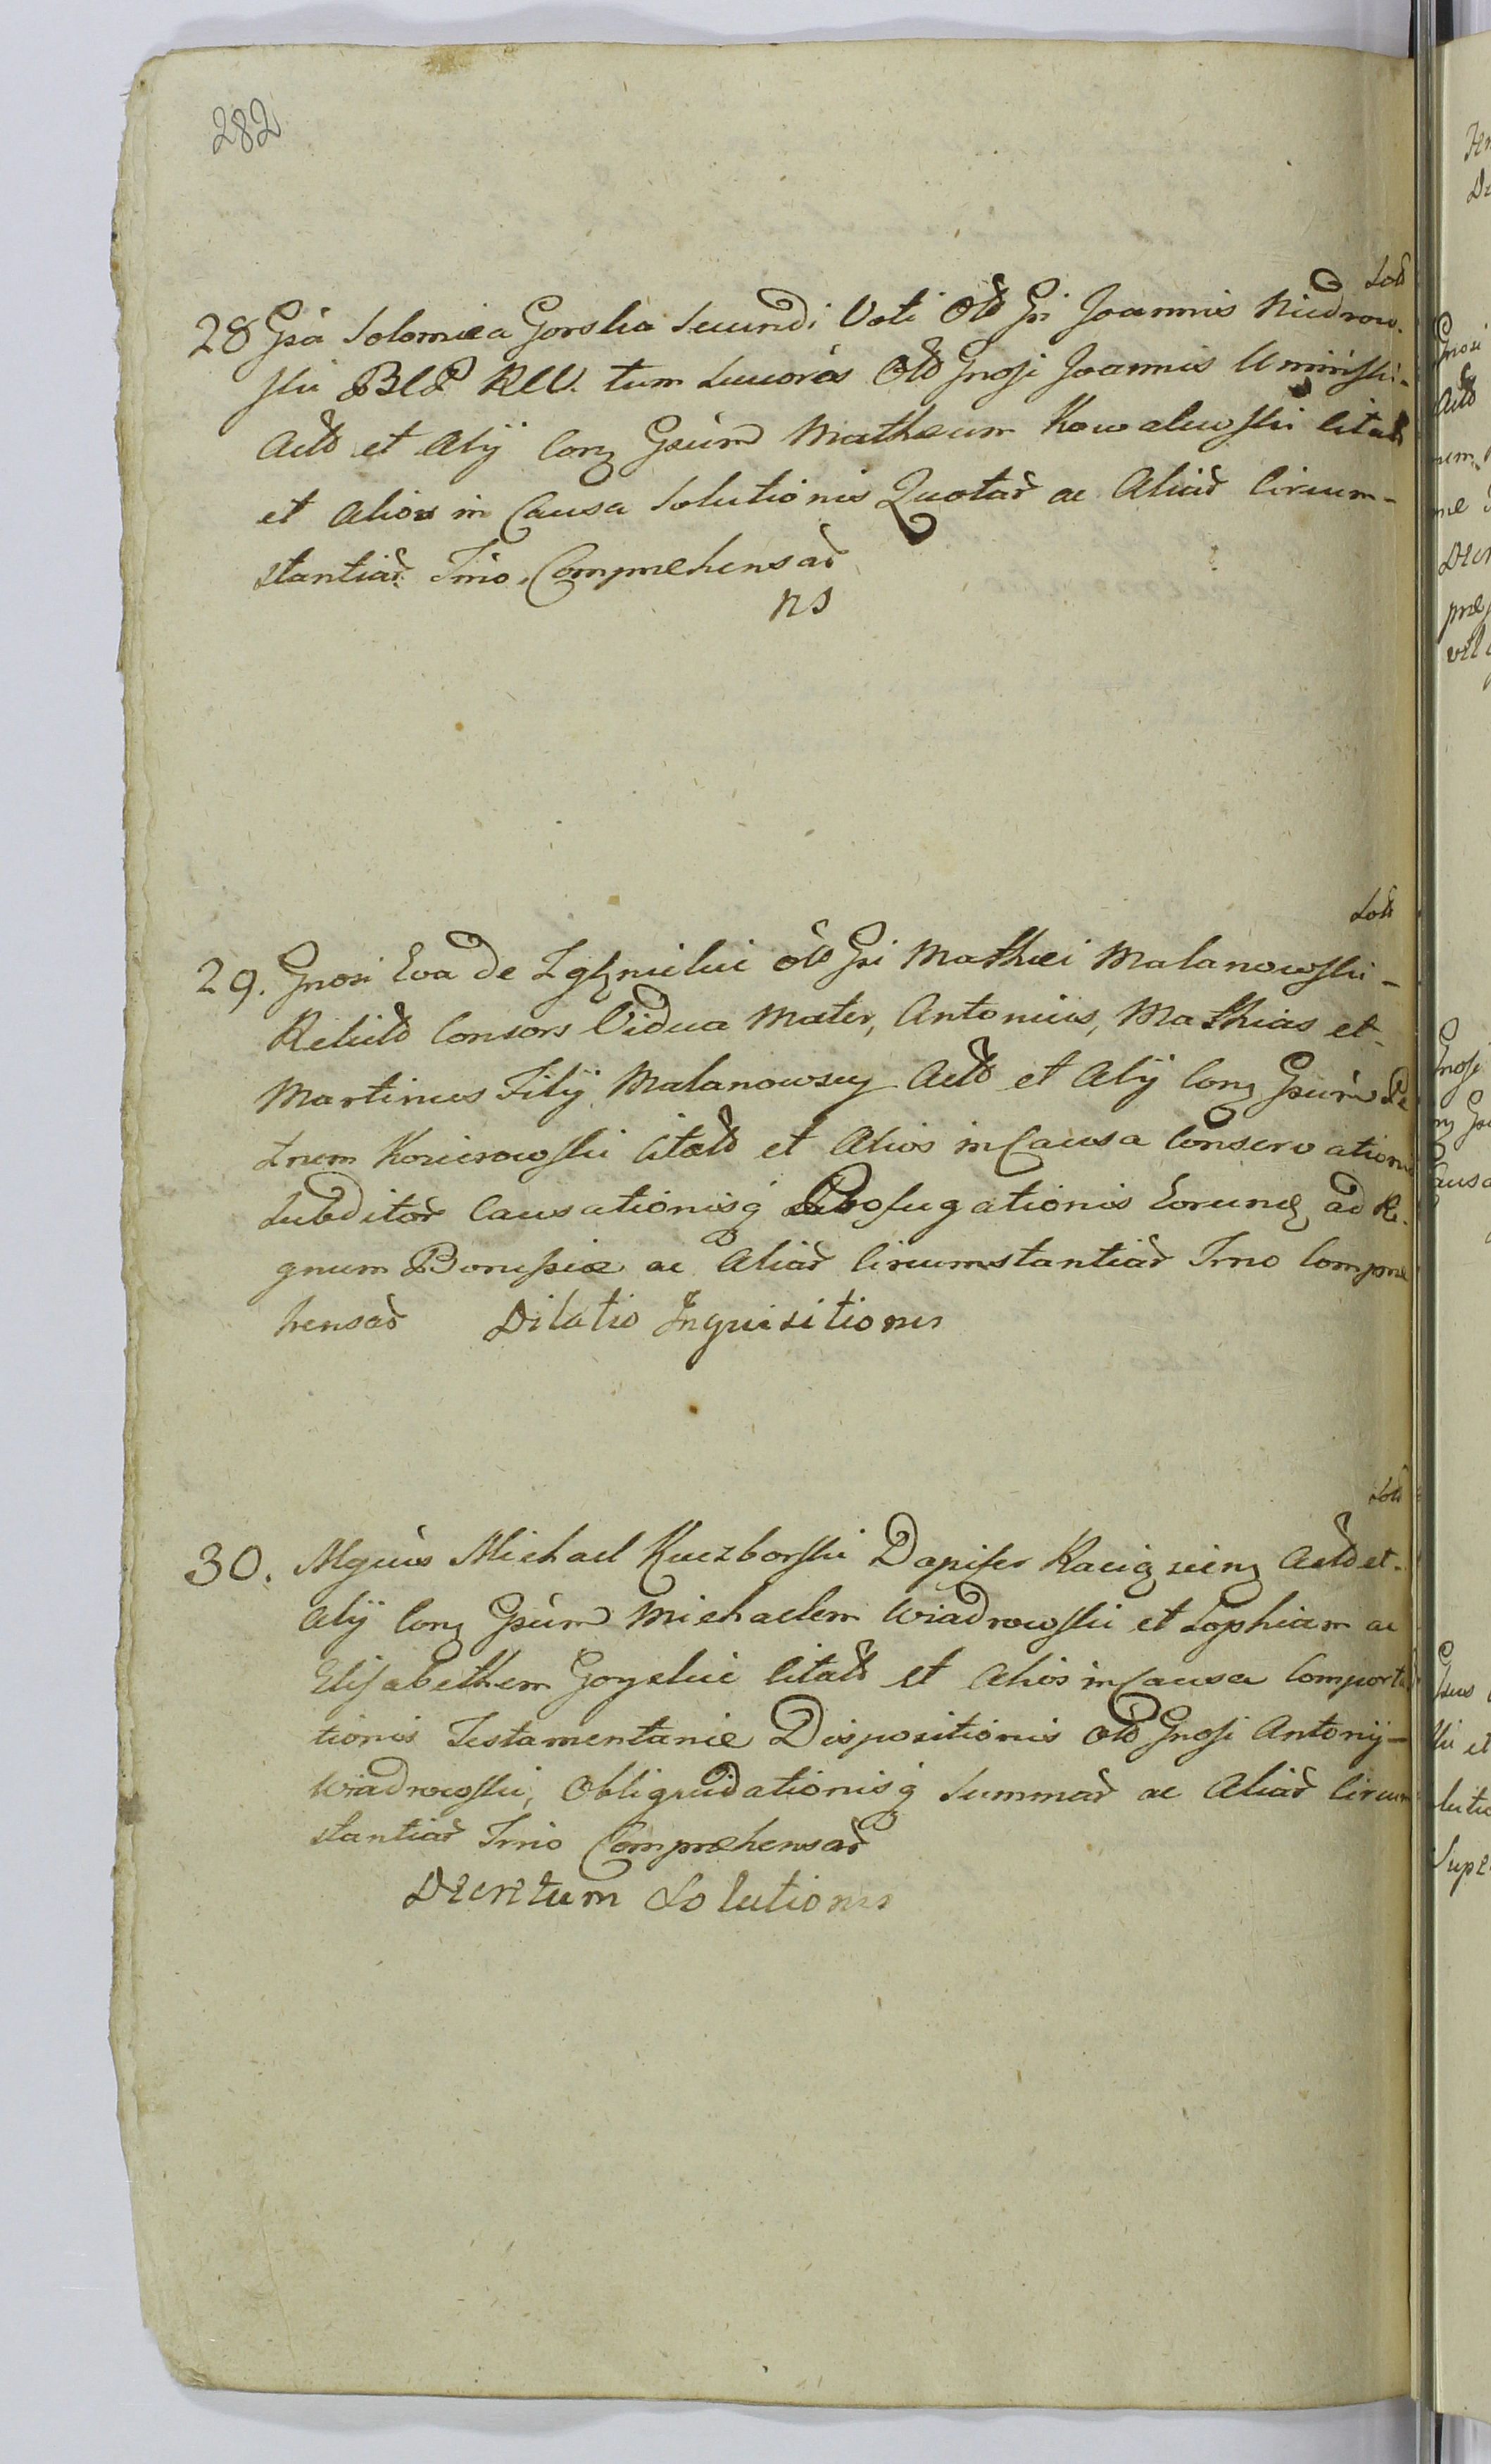 282
Sołd
28 Gsa Solomea Gorska Secundi Voti Old Gsi Joannis Niedrow-
ski BCP REV. tum Sucoras Old Gnosi Joannis Uminski-
Actd et Alÿ Corz Gsum Mathæum Kowalewski Citatd
et Alios in Causa Solutionis Quotar ac Aliar Circum-
stantiar Trio Comprehensar
ns
Sołd
29. Gnosi Eva de Zglnickie old Gsi Mathæi Malanowski-
Relictd Consors Vidua Mater, Antonius, Mathias et-
Martinus Filÿ Malanowscy Actd et Alÿ Corz Gsum Pe
trum Kozierowski Citatd et Alios in Causa Conservationis
Subditor Causationisq Profugationis Eorund ad Re-
gnum Borussiæ ac Aliar Circumstantiar Trno Compræ
hensar Dilatio Inquisitionis
Sołd
30. Mgcus Michael Kuczborski Dapifer Raciąscięn Actd et-
Alÿ Corz Gsum Michaelem Wiadrowski et Sophiam ac
Elisabethem Goyskie Citatd et Alios in Causa Comporta
tionis Testamentariæ Dispositionis old Gnosi Antonij-
Wiadrowski, Obliquidationisq Summar ac Aliar Circum
stantiar Trio Comprehensar
Decretum Solutionis